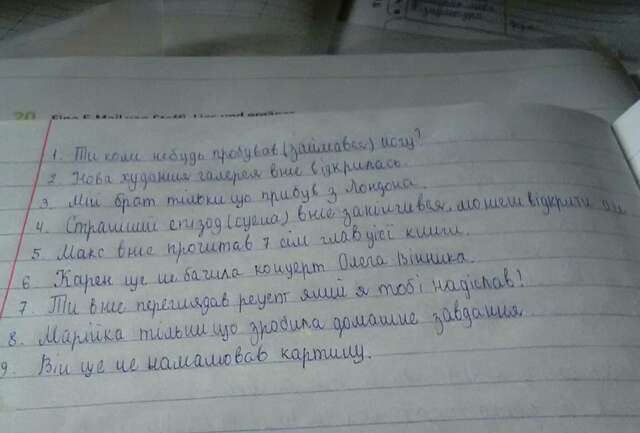 20 Eine E-Mail von Steffi. Lies und ergänze
1. Ти коли небудь пробував (займався) йогу?
2. Нова художня галерея вже відкрилась.
3. Мій брат тільки що прибув з Лондона.
4. Страшний епізод (сцена) вже закінчився, можеш відкрити очі
5. Макс вже прочитав 7 сім глав цієї книги.
6 Карен ще не бачила концерт Олега Вінника.
7. Ти вже переглядав рецепт який я тобі надіслав?
8. Марійка тільки що зробила домашнє завдання.
9. Він ще не намалював картину.